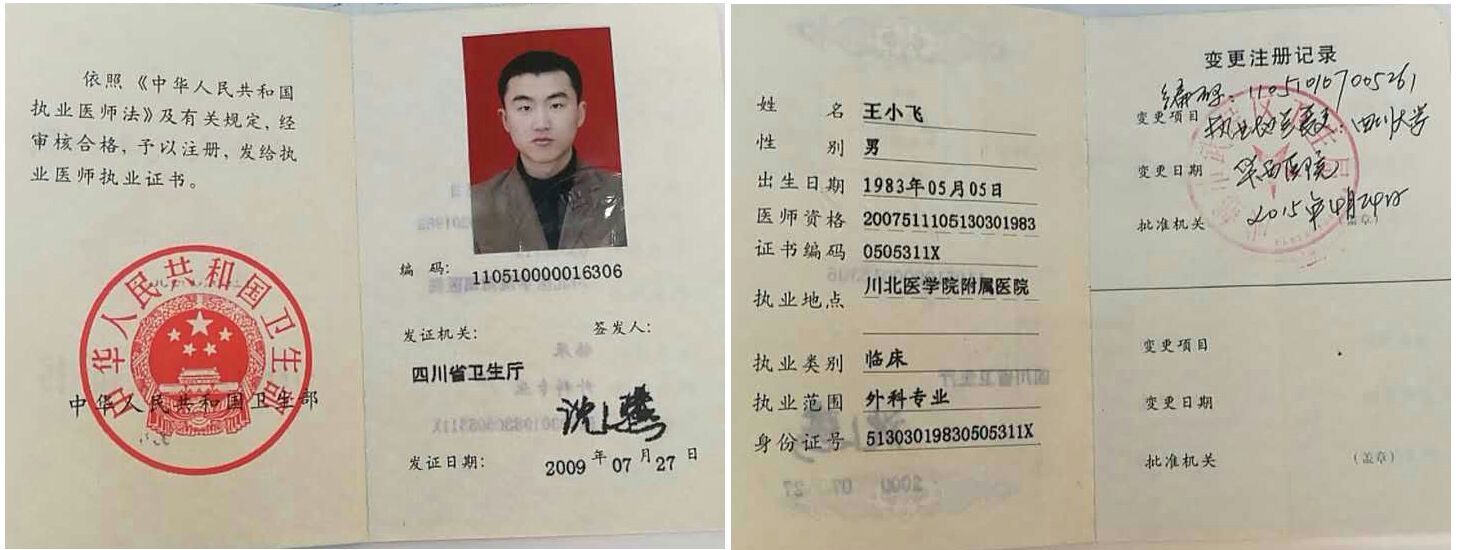 依照《中华人民共和国
执业医师法》及有关规定,经
审核合格,予以注册,发给执
业医师执业证书。
中华人民共和国卫生部
中华人民共和国卫生部
编 码: 110510000016306
发证机关: 签发人:
四川省卫生厅
发证日期: 2009 年 07 月 27 日
姓 名 王小飞
性 别 男
出生日期 1983年05月05日
医师资格 2007511105130301983
证书编码 0505311X
执业地点 川北医学院附属医院
执业类别 临床
执业范围 外科专业
身份证号 51303019830505311X
变更注册记录
编码:110510107005261
变更项目 执业地点变更:四川大学
变更日期 华西医院
批准机关 2015年4月24日 (盖章)
变更项目
变更日期
批准机关 (盖章)